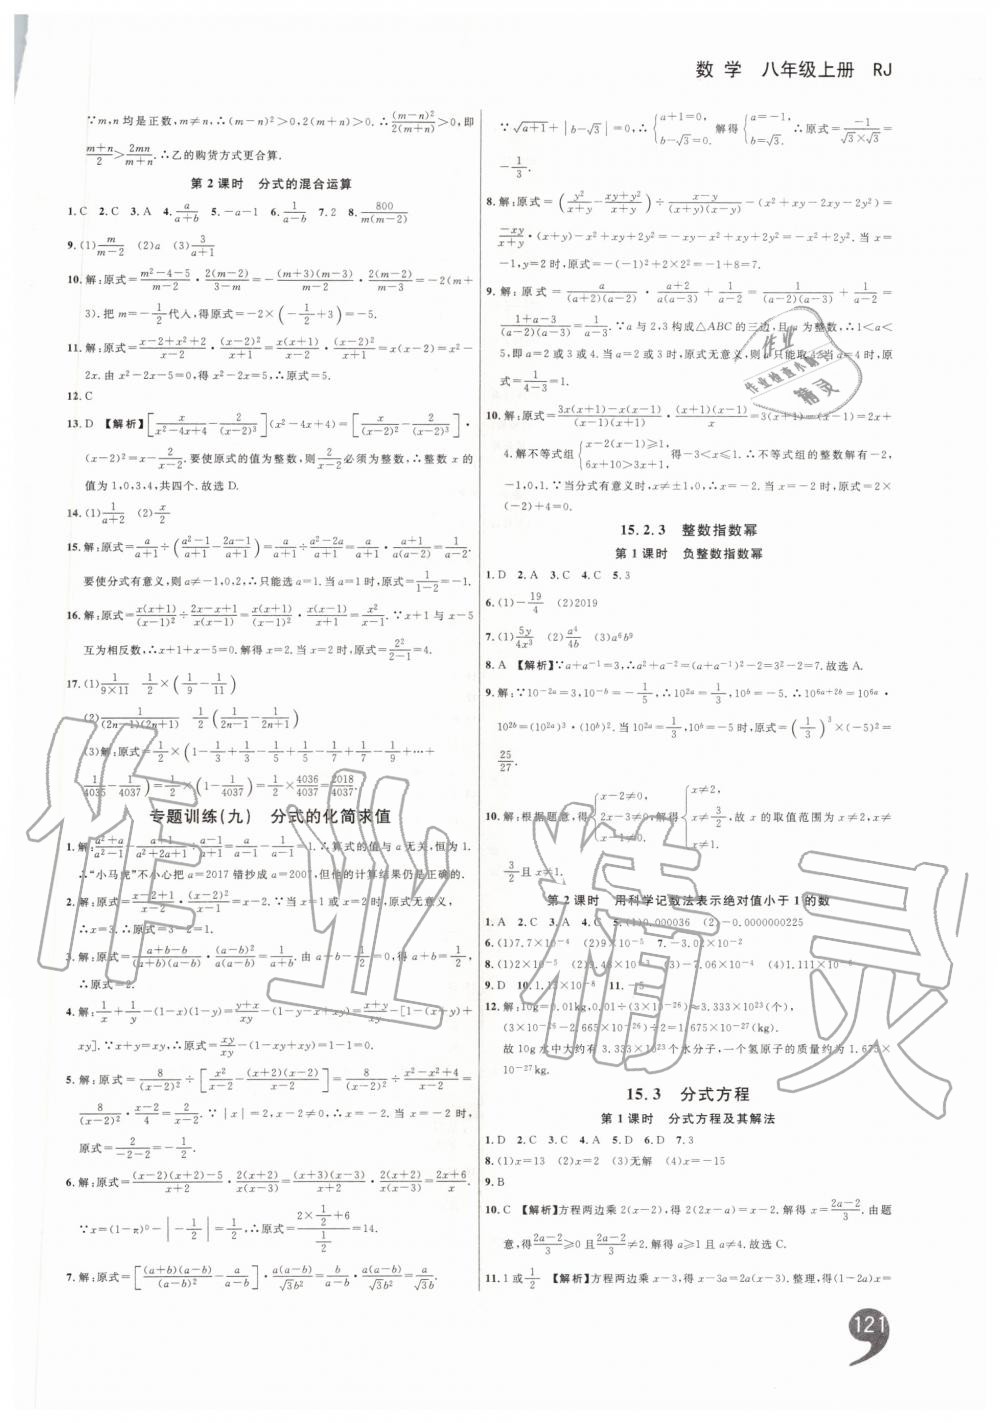 数学 八年级上册 RJ
∵m,n均是正数,m≠n,∴(m−n)²>0,2(m+n)>0.∴(m−n)²/2(m+n)>0,即
(m+n)/2>2mn/(m+n).∴乙的购货方式更合算.
第2课时 分式的混合运算
1.C 2.C 3.A 4.a/(a+b) 5.−a−1 6.1/(a−b) 7.2 8.800/m(m−2)
9.(1)m/(m−n) (2)a (3)3/(a+1)
10.解:原式=(m²−4−5)/(m−2)·2(m−2)/(3−m)=−(m+3)(m−3)/(m−2)·2(m−2)/(m−3)=−2(m+
3).把m=−1/2代入,得原式=−2×(−1/2+3)=−5.
11.解:原式=(x−2+x²+2)/(x−2)·x(x−2)/(x+1)=x(x+1)/(x−2)·x(x−2)/(x+1)=x(x−2)=x²−
2x.由x²−2x−5=0,得x²−2x=5.∴原式=5.
12.C
13.D 【解析】[x/(x²−4x+4)−2/(x−2)²](x²−4x+4)=[x/(x−2)²−2/(x−2)²]·
(x−2)²=x/(x−2).要使原式的值为整数,则2/(x−2)必须为整数,∴整数x的
值为1,0,3,4,共四个.故选D.
14.(1)1/(a+2) (2)x/2
15.解:原式=a/(a+1)÷((a²−1)/(a+1)−(2a−1)/(a+1))=a/(a+1)÷(a²−2a)/(a+1)=a/(a+1)·(a+1)/a(a−2)=1/(a−2).
要使分式有意义,则a≠−1,0,2,∴只能选a=1.当a=1时,原式=1/(1−2)=−1.
16.解:原式=x(x+1)/(x−1)²÷(2x−x+1)/x(x−1)=x(x+1)/(x−1)²·x(x−1)/(x+1)=x²/(x−1).∵x+1与x−5
互为相反数,∴x+1+x−5=0.解得x=2.当x=2时,原式=2²/(2−1)=4.
17.(1)1/(9×11) 1/2×(1/9−1/11)
(2)1/(2n−1)(2n+1) 1/2(1/(2n−1)−1/(2n+1))
(3)解:原式=1/2×(1−1/3+1/3−1/5+1/5−1/7+1/7−1/9+⋯+
1/4035−1/4037)=1/2×(1−1/4037)=1/2×4036/4037=2018/4037.
专题训练(九) 分式的化简求值
1.解:(a²+a)/(a²−1)−(a²−1)/(a²+2a+1)÷(a−1)/(a+1)=a/(a−1)−1/(a−1)=1.∴算式的值与a无关,恒为1.
∴“小马虎”不小心把a=2017错抄成a=2007,但他的计算结果仍是正确的.
2.解:原式=(x−2+1)/(x−2)·(x−2)²/(x−1)=x−2.∵当x=1或x=2时,原式无意义,
∴x=3.∴原式=3−2=1.
3.解:原式=(a+b−b)/(a+b)(a−b)·(a−b)/a=1/(a+b).∵a+b−1/2=0,得a+b=1/2,
∴原式=2.
4.解:1/x+1/y−(1−x)(1−y)=(y+x)/xy−(1−y−x+xy)=(x+y)/xy−[1−(x+y)
+xy].∵x+y=xy,∴原式=xy/xy−(1−xy+xy)=1−1=0.
5.解:原式=8/(x−2)²÷[x²/(x−2)−(x+2)(x−2)/(x−2)]=8/(x−2)²÷(x²−x²+4)/(x−2)=
8/(x−2)²·(x−2)/4=2/(x−2).∵|x|=2,x−2≠0,∴x=−2.当x=−2时,
原式=2/(−2−2)=−1/2.
6.解:原式=((x−2)(x+2)−5)/(x+2)·2(x+2)/x(x−3)=(x+3)(x−3)/(x+2)·2(x+2)/x(x−3)=(2x+6)/x.
∵x=(1−π)⁰−|−1/2|=1/2,∴原式=(2×1/2+6)/(1/2)=14.
7.解:原式=[(a+b)(a−b)/(a−b)²−a/(a−b)]·a(a−b)/√3b²=b/(a−b)·a(a−b)/√3b²=a/√3b.
∵√(a+1)+|b−√3|=0,∴{a+1=0, b−√3=0.解得{a=−1, b=√3.∴原式=−1/(√3×√3)=
−1/3.
8.解:原式=(y²/(x+y)−(xy+y²)/(x+y))÷(x−y)/(x+y)(x−y)−(x²+xy−2xy−2y²)=
−xy/(x+y)·(x+y)−x²+xy+2y²=−xy−x²+xy+2y²=−x²+2y².当x=
−1,y=2时,原式=−(−1)²+2×2²=−1+8=7.
9.解:原式=a/(a+2)(a−2)·(a+2)/a(a−3)+1/(a−2)=1/(a−2)(a−3)+1/(a−2)=
(1+a−3)/(a−2)(a−3)=1/(a−3).∵a与2,3构成△ABC的三边,且a为整数,∴1<a<
5,即a=2或3或4.当a=2或a=3时,原式无意义,则a只能取4.当a=4时,原
式=1/(4−3)=1.
10.解:原式=(3x(x+1)−x(x−1))/(x−1)(x+1)·(x−1)(x+1)/x=3(x+1)−(x−1)=2x+
4.解不等式组{x−2(x−1)≥1, 6x+10>3x+1,得−3<x≤1.∴不等式组的整数解有−2,
−1,0,1.∵当分式有意义时,x≠±1,0,∴x=−2.当x=−2时,原式=2×
(−2)+4=0.
15.2.3 整数指数幂
第1课时 负整数指数幂
1.D 2.A 3.C 4.C 5.3
6.(1)−19/4 (2)2019
7.(1)5y/4x³ (2)a⁴/4b (3)a⁶b⁹
8.A 【解析】∵a+a⁻¹=3,∴a²+a⁻²=(a+a⁻¹)²−2=3²−2=7.故选A.
9.解:∵10⁻²ᵃ=3,10⁻ᵇ=−1/5,∴10²ᵃ=1/3,10ᵇ=−5.∴10⁶ᵃ⁺²ᵇ=10⁶ᵃ·
10²ᵇ=(10²ᵃ)³·(10ᵇ)².当10²ᵃ=1/3,10ᵇ=−5时,原式=(1/3)³×(−5)²=
25/27.
10.解:根据题意,得{x−2≠0, 2x−3≠0, x−1≠0.解得{x≠2, x≠3/2, x≠1.故x的取值范围为x≠2,x≠
3/2且x≠1.
第2课时 用科学记数法表示绝对值小于1的数
1.A 2.C 3.A 4.C 5.(1)0.000036 (2)−0.0000000225
6.(1)7.7×10⁻⁴ (2)9×10⁻⁵ 7.−3.02×10⁻⁵
8.(1)2×10⁻⁵ (3)−7.06×10⁻⁴ (4)1.111×10⁻⁶
9.D
12.解:10g=0.01kg,0.01÷(3×10⁻²⁶)≈3.333×10²³(个),
(3×10⁻²⁶−2.665×10⁻²⁶)÷2=1.675×10⁻²⁷(kg).
故10g水中大约有3.333×10²³个水分子,一个氢原子的质量约为1.675
×10⁻²⁷kg.
15.3 分式方程
第1课时 分式方程及其解法
1.D 2.C 3.C 4.A 5.D 6.D 7.3
8.(1)x=13 (2)x=2 (3)无解 (4)x=−15
9.B
10.C 【解析】方程两边乘2(x−2),得2(2x−a)=x−2.解得x=(2a−2)/3.由题
意,得(2a−2)/3≥0且(2a−2)/3≠2.解得a≥1且a≠4.故选C.
11.1或1/2 【解析】方程两边乘x−3,得x−3a=2a(x−3).整理,得(1−2a)x=
121
作业
作业检查小帮手
精灵
作业精灵